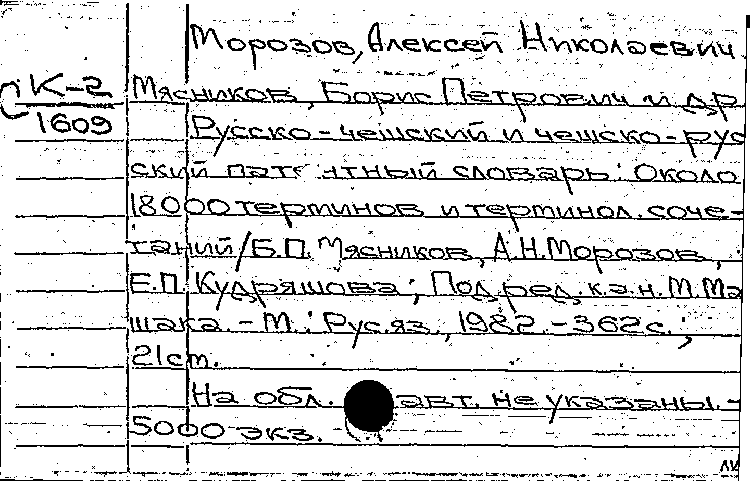 Морозов, Алексей Николаевич
ПК-2
1609
Мясников, Борис Петрович и др.
Русско-чешский и чешско-рус
ский патентный словарь: Около
18000 терминов и терминол. соче-
таний / Б.П. Мясников, А.Н. Морозов,
Е.П. Кудряшова; Под ред. к.э.н. М. Ма
шака. - М.: Рус. яз., 1982. - 362 с.;
21 cm.
На обл. авт. не указаны. -
5000 экз.